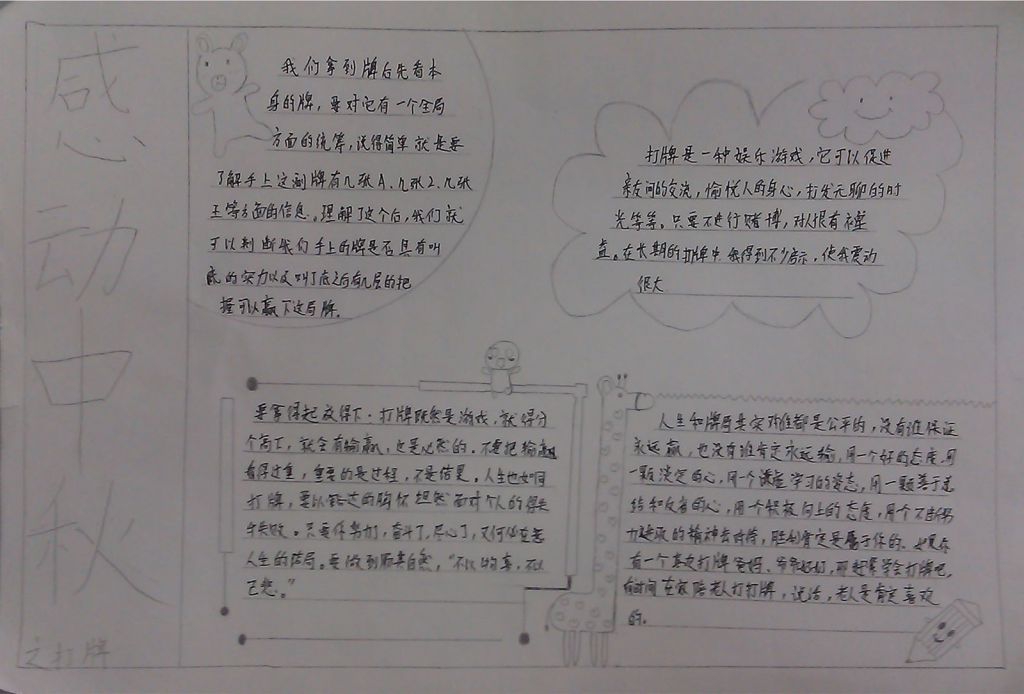 感动中秋
之打牌
我们拿到牌后先看本
身的牌，要对它有一个全局
方面的统筹，说得简单就是要
了解手上这副牌有几张A、几张2、几张
王等方面的信息。理解了这个后，我们就
可以判断我们手上的牌是否具有叫
底的实力以及叫了底之后有几层的把
握可以赢下这局牌。
打牌是一种娱乐游戏，它可以促进
亲友间的交流，愉悦人的身心，打发无聊的时
光等等。只要不进行赌博，对人很有裨
益。在长期的打牌中 我得到不少启示，使我震动
很大
要拿得起放得下。打牌既然是游戏，就得分
个高下，就会有输赢，这是必然的。不要把输赢
看得过重，重要的是过程，不是结果。人生也如同
打牌，要以豁达的胸怀 坦然面对个人的得失
与失败。只要你努力了，奋斗了，尽心了，又何必在意
人生的结局。要做到顺其自然，“不以物喜，不以
己悲。”
人生和牌局其实对谁都是公平的，没有谁保证
永远赢，也没有谁肯定永远输，用一个好的态度，用
一颗淡定的心，用一个谦虚学习的姿态，用一颗善于总
结和反省的心，用个积极向上的态度，用个不断努
力进取的精神去对待，胜利肯定是属于你的。如果你
有一个喜欢打牌爸妈、爷爷奶奶，那赶紧学会打牌吧，
抽时间在家陪老人打打牌，说话，老人是肯定喜欢
的。